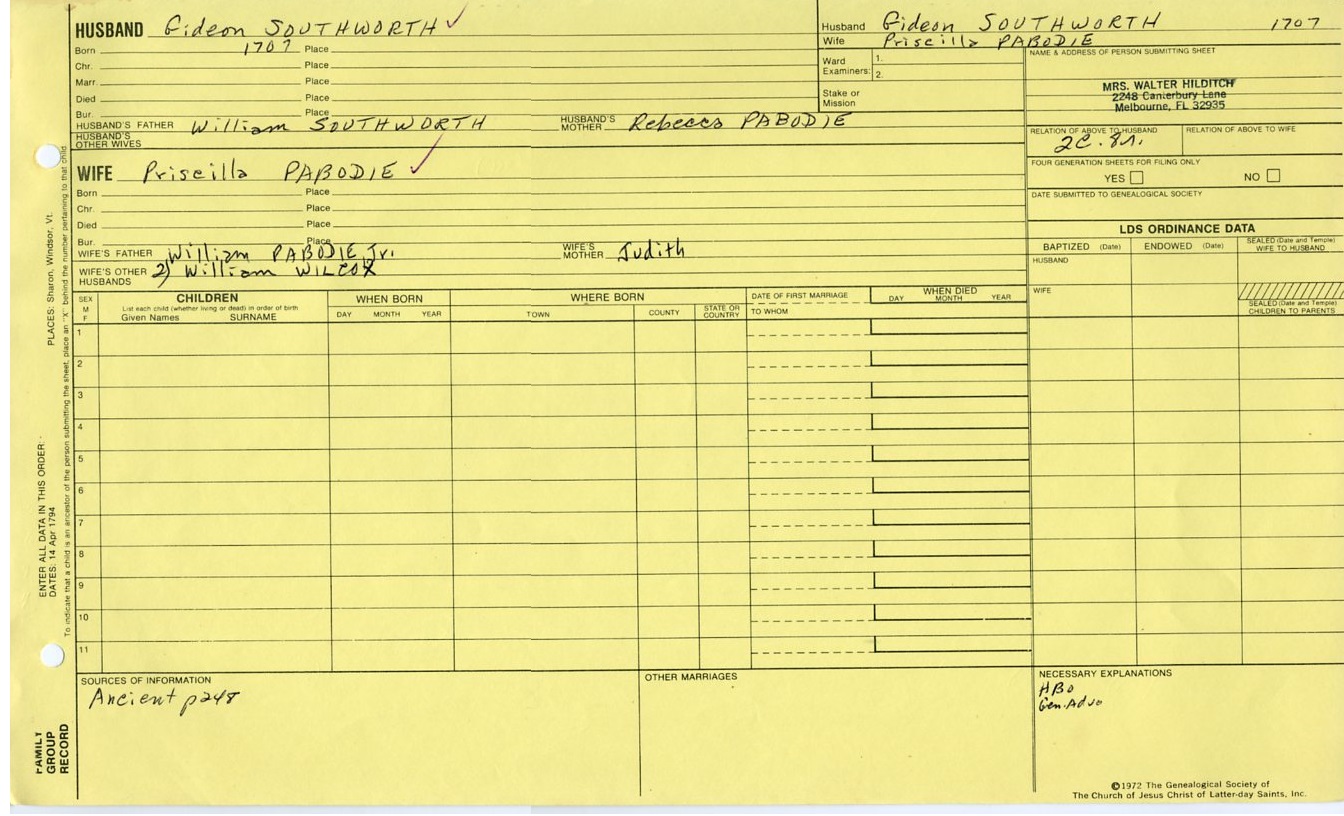 HUSBAND Gideon SOUTHWORTH ✓
Born 1707 Place
Chr. Place
Marr. Place
Died Place
Bur. Place
HUSBAND'S FATHER William SOUTHWORTH HUSBAND'S MOTHER Rebecca PABODIE
HUSBAND'S OTHER WIVES
WIFE Priscilla PABODIE ✓
Born Place
Chr. Place
Died Place
Bur. Place
WIFE'S FATHER William PABODIE, Jr. WIFE'S MOTHER Judith
WIFE'S OTHER HUSBANDS 2) William WILCOX
Husband Gideon SOUTHWORTH 1707
Wife Priscilla PABODIE
Ward Examiners: 1.
2.
Stake or Mission
NAME & ADDRESS OF PERSON SUBMITTING SHEET
MRS. WALTER HILDITCH
2248 Canterbury Lane
Melbourne, FL 32935
RELATION OF ABOVE TO HUSBAND RELATION OF ABOVE TO WIFE
2C. 8r.
FOUR GENERATION SHEETS FOR FILING ONLY
YES NO
DATE SUBMITTED TO GENEALOGICAL SOCIETY
LDS ORDINANCE DATA
BAPTIZED (Date) ENDOWED (Date) SEALED (Date and Temple) WIFE TO HUSBAND
HUSBAND
WIFE
SEALED (Date and Temple) CHILDREN TO PARENTS
SEX M F
CHILDREN
List each child (whether living or dead) in order of birth
Given Names SURNAME
WHEN BORN
DAY MONTH YEAR
WHERE BORN
TOWN COUNTY STATE OR COUNTRY
DATE OF FIRST MARRIAGE
TO WHOM
WHEN DIED
DAY MONTH YEAR
1
2
3
4
5
6
7
8
9
10
11
SOURCES OF INFORMATION
Ancient p248
OTHER MARRIAGES
NECESSARY EXPLANATIONS
HBO
Gen. Advo
©1972 The Genealogical Society of
The Church of Jesus Christ of Latter-day Saints, Inc.
FAMILY GROUP RECORD
ENTER ALL DATA IN THIS ORDER:
DATES: 14 Apr 1794
PLACES: Sharon, Windsor, Vt.
To indicate that a child is an ancestor of the person submitting the sheet, place an "X" behind the number pertaining to that child.